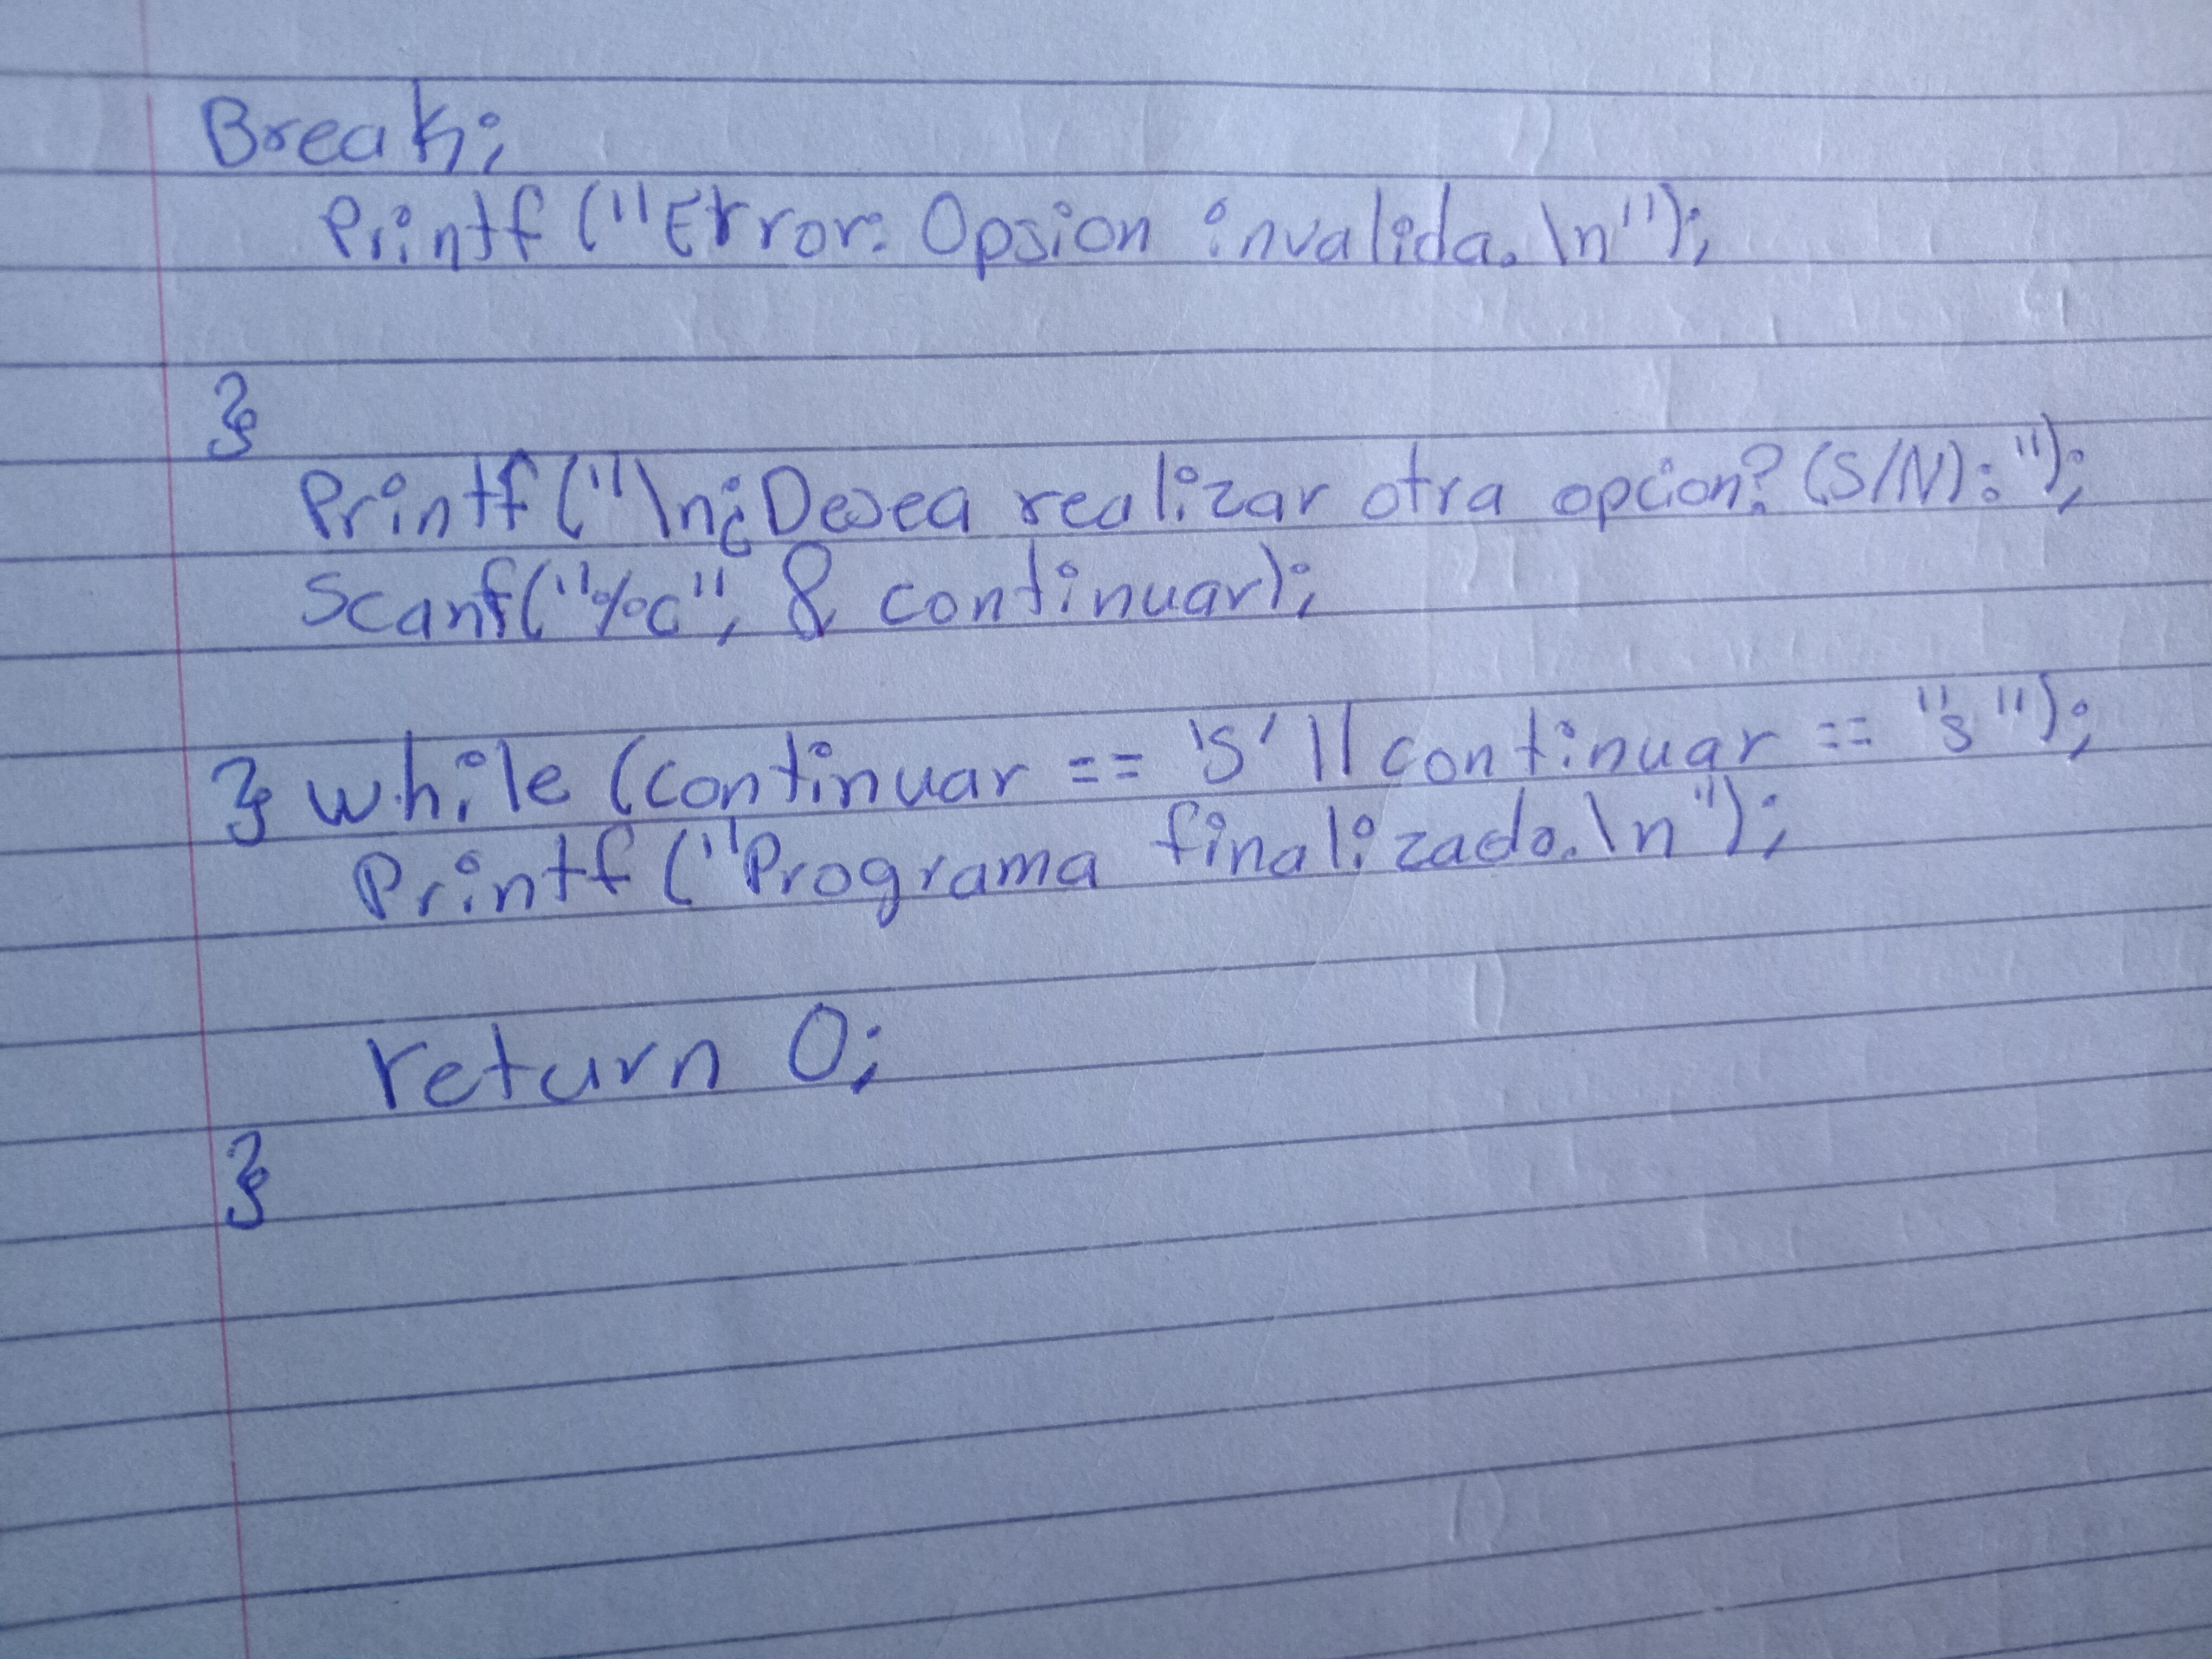 Break;
Printf ("Error: Opsion invalida. \n");
}
Printf ("\n¿Desea realizar otra opcion? (S/N): ");
Scanf("%c", & continuar);
} while (continuar == 'S' || continuar == "s");
Printf ("Programa finalizado.\n");
return 0;
}